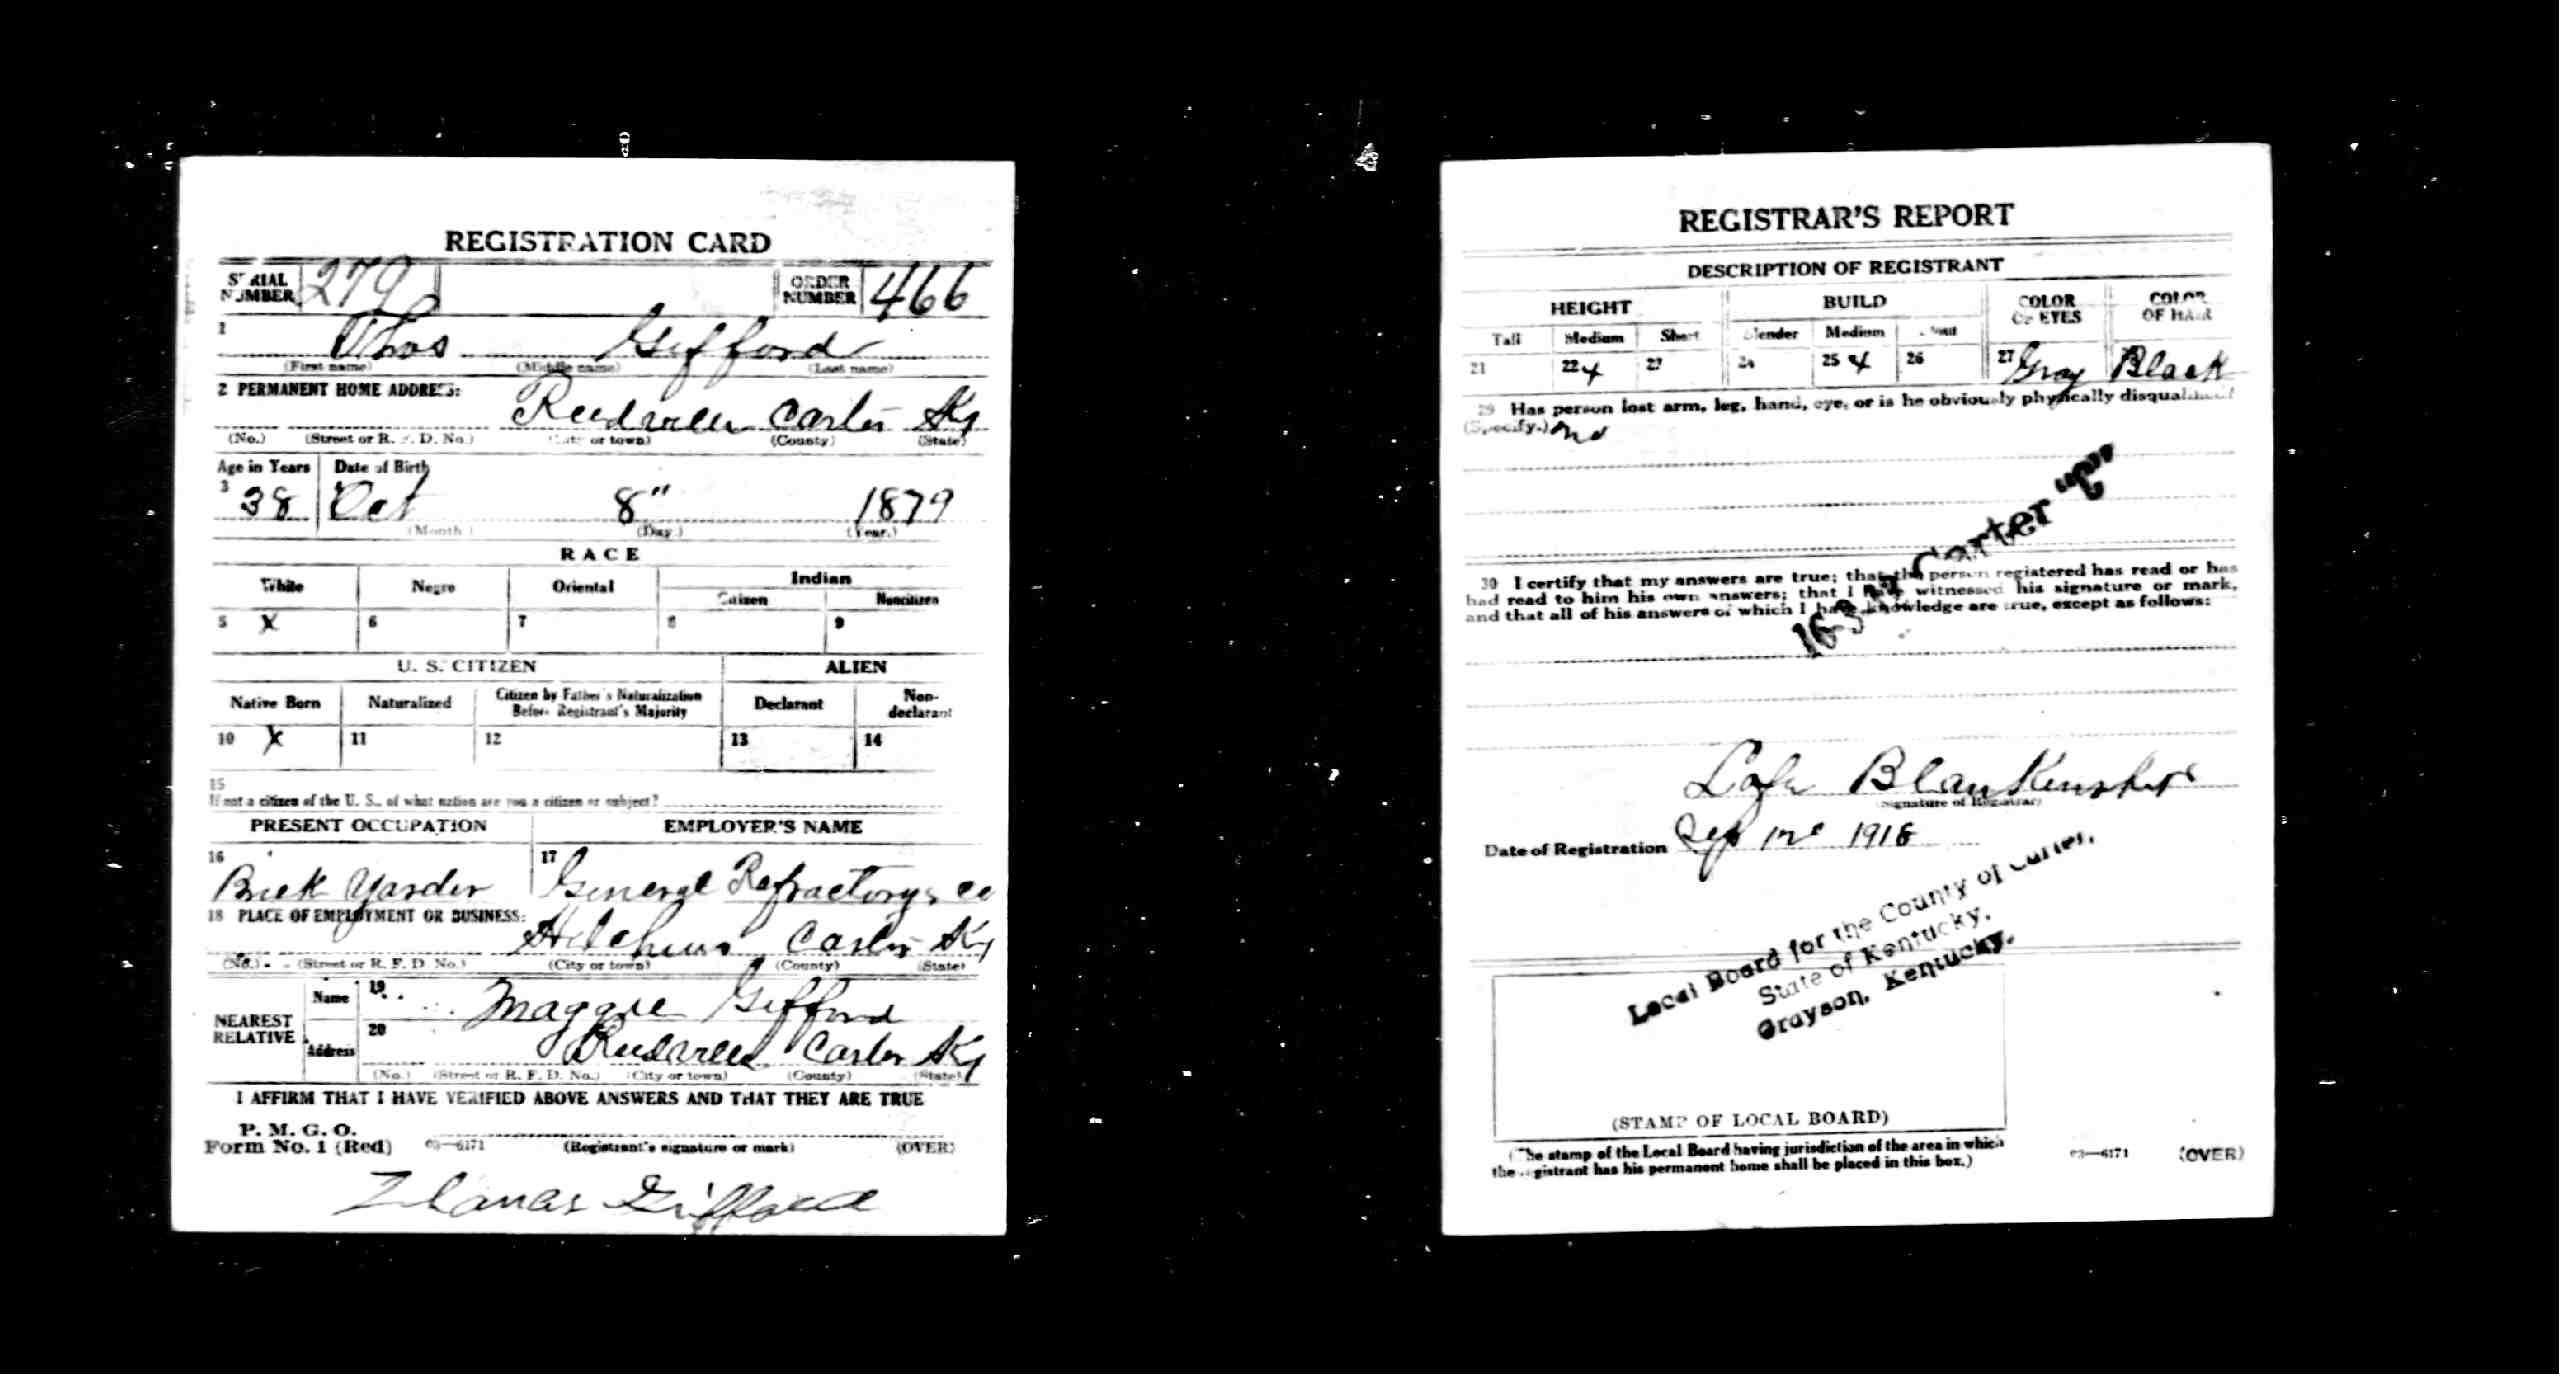 REGISTRATION CARD
SERIAL NUMBER 279 ORDER NUMBER 466
1 Thos Gifford
(First name) (Middle name) (Last name)
2 PERMANENT HOME ADDRESS:
Reedville Carter Ky
(No.) (Street or R. F. D. No.) (City or town) (County) (State)
Age in Years Date of Birth
3 38 Oct 8" 1879
(Month.) (Day.) (Year.)
RACE
White Negro Oriental Indian
Citizen Noncitizen
5 X 6 7 8 9
U. S. CITIZEN ALIEN
Native Born Naturalized Citizen by Father's Naturalization Before Registrant's Majority Declarant Non-declarant
10 X 11 12 13 14
15
If not a citizen of the U. S., of what nation are you a citizen or subject?
PRESENT OCCUPATION EMPLOYER'S NAME
16 Brick Yarder 17 General Refractorys Co
18 PLACE OF EMPLOYMENT OR BUSINESS:
Hitchins Carter Ky
(No.) (Street or R. F. D. No.) (City or town) (County) (State)
NEAREST RELATIVE
Name 19 Maggie Gifford
Address 20 Reedville Carter Ky
(No.) (Street or R. F. D. No.) (City or town) (County) (State)
I AFFIRM THAT I HAVE VERIFIED ABOVE ANSWERS AND THAT THEY ARE TRUE
P. M. G. O.
Form No. 1 (Red) 03—6171 (Registrant's signature or mark) (OVER)
Thomas Gifford
REGISTRAR'S REPORT
DESCRIPTION OF REGISTRANT
HEIGHT BUILD COLOR OF EYES COLOR OF HAIR
Tall Medium Short Slender Medium Stout
21 22 x 23 24 25 x 26 27 Gray Black
29 Has person lost arm, leg, hand, eye, or is he obviously physically disqualified?
(Specify.) no
Carter "C"
30 I certify that my answers are true; that the person registered has read or has
had read to him his own answers; that I have witnessed his signature or mark,
and that all of his answers of which I have knowledge are true, except as follows:
Lafe Blankenship
(Signature of Registrar)
Date of Registration Sep 12 1918
Local Board for the County of Carter,
State of Kentucky,
Grayson, Kentucky.
(STAMP OF LOCAL BOARD)
(The stamp of the Local Board having jurisdiction of the area in which
the registrant has his permanent home shall be placed in this box.)
03—6171 (OVER)